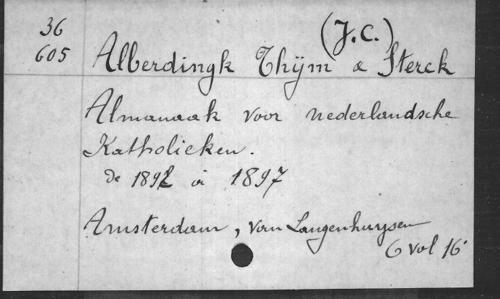 36
605
(J.C.)
Alberdingk Thijm & Sterck
Almanaak voor nederlandsche
Katholieken.
de 1892 à 1897
Amsterdam, van Langenhuysen
6 vol 16°